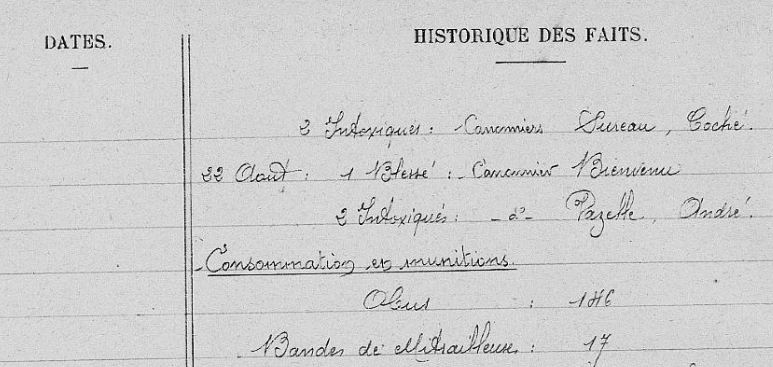 DATES.
HISTORIQUE DES FAITS.
2 Intoxiqués : Canonniers Sureau, Coché.
22 Août : 1 Blessé : Canonnier Bienvenu
2 Intoxiqués : - d° - Pazelle, André.
Consommation en munitions.
Obus : 146
Bandes de Mitrailleuse : 17